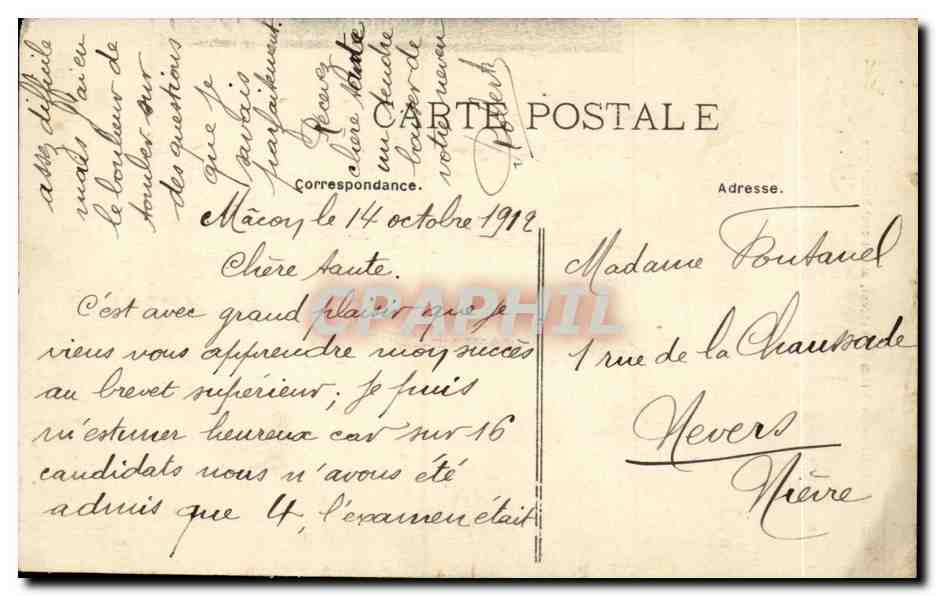 CARTE POSTALE
Correspondance.
Adresse.
Mâcon le 14 octobre 1912
Chère tante.
C'est avec grand plaisir que je
viens vous apprendre mon succès
au brevet supérieur ; Je puis
m'estimer heureux car sur 16
candidats nous n'avons été
admis que 4, l'examen était
assez difficile
mais j'ai eu
le bonheur de
tomber sur
des questions
que je
savais
parfaitement.
Recevez
chère tante
un tendre
baiser de
votre neveu
Robert
Madame Fontanel
1 rue de la Chaussade
Nevers
Nièvre
CPAPHIL